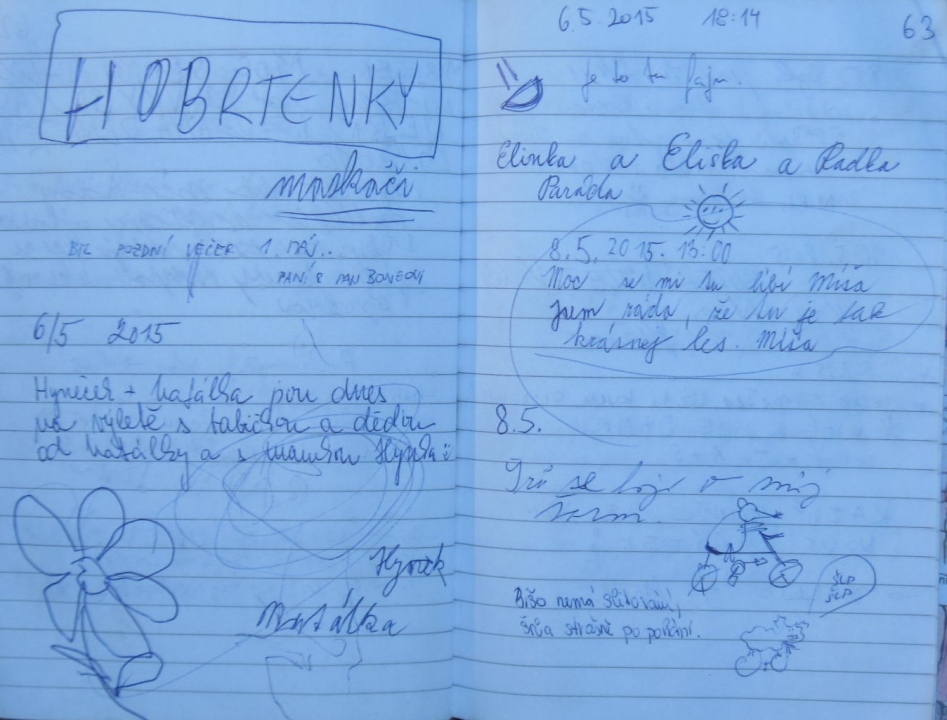 HOBRTENKY
maskáči
BYL POZDNÍ VEČER 1. MÁJ..
PANÍ & PAN BONEOVI
6/5 2015
Hyneček + Natálka jsou dnes
na výletě s babičkou a dědou
od Natálky a s mamkou Hynka :
Hynek
Natálka
6.5. 2015 18:14
63
je to tu fajn.
Elinka a Eliška a Radka
Paráda
8.5. 2015. 13:00
Moc se mi tu líbí Míša
jsem ráda, že tu je tak
krásnej les. Míša
8.5.
se boje o můj
Bišo nemá slitování,
šlape strašně po
ŠLP
ŠLP